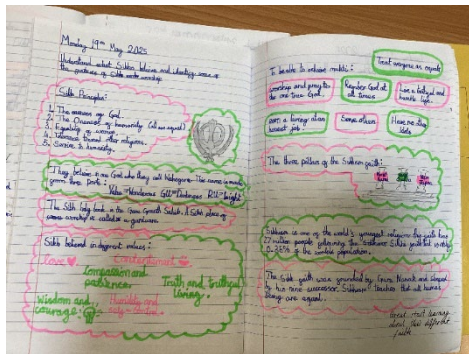 Monday 19th May 2025
Understand what Sikhs believe and identify some of
the features of Sikh
Sikh Principles:
1. The oneness of God.
2. The Oneness of humanity (all are equal)
3. Equality of women.
4. Tolerance toward other religions.
5. Service to humanity.
They believe in one God who they call Waheguru. This name is made
from three parts:
Wahe = Wonderous GU = Darkness RU = bright
The Sikh holy book is the Guru Granth Sahib. A Sikh place of
worship is called a gurdwara
Sikh believe in different values:
love
Contentment
Compassion and
patience.
Truth and truthful
living.
Wisdom and
courage.
Humility and
self-control.
To be able to achieve mukti:
Treat everyone as equals
worship and pray to
the one true God.
Remember God at
all times
Live a
humble life.
earn a living of an
honest job.
Serve others
Have no
idols
The three pillars of the Sikhism faith:
Sikhism is one of the world's youngest religions the faith has
27 million people following the
0.35% of the world population.
The Sikh faith was grounded by Guru Nanak and shaped
by his nine successor. Sikhism teaches that all humans
beings are equal.
Great start learning
about this different
faith.